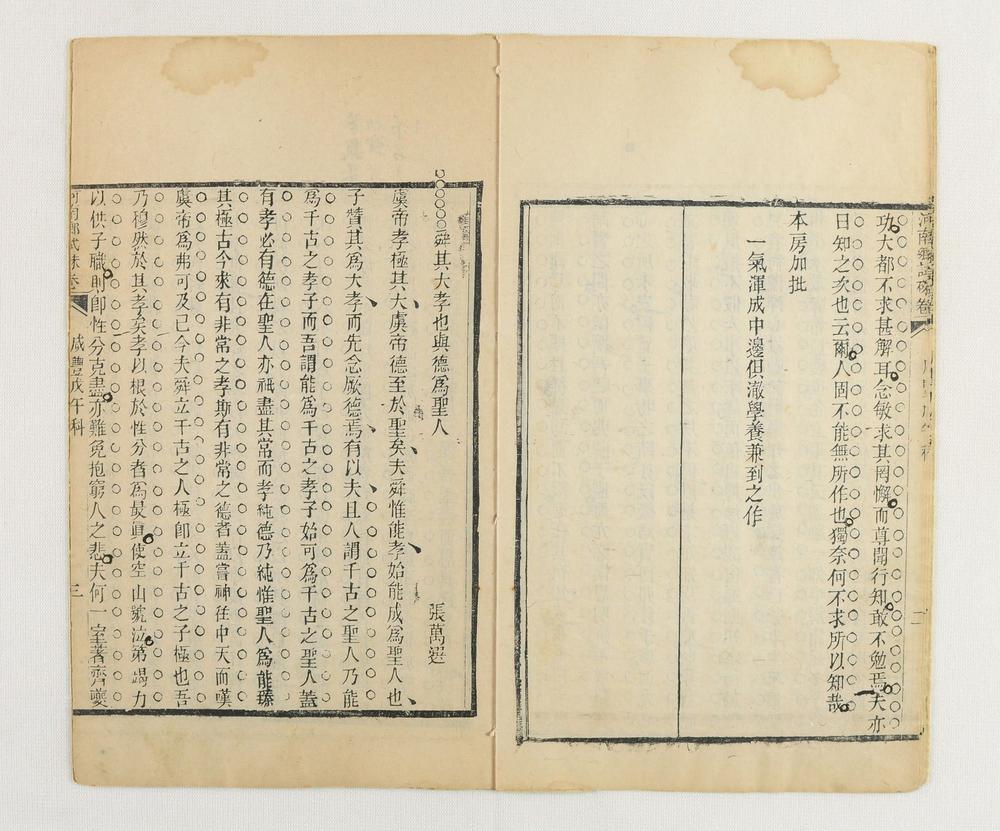 功大都不求甚解耳念敏求其罔懈而尊聞行知敢不勉焉夫亦
日知之次也云爾人固不能無所作也獨奈何不求所以知哉
本房加批
一氣渾成中邊俱澈學養兼到之作
二
舜其大孝也與德為聖人
張萬選
虞帝孝極其大虞帝德至於聖矣夫舜惟能孝始能成為聖人也
子贊其為大孝而先念厥德焉有以夫且人謂千古之聖人乃能
為千古之孝子而吾謂能為千古之孝子始可為千古之聖人蓋
有孝必有德在聖人亦祇盡其常而孝純德乃純惟聖人為能臻
其極古今來有非常之孝斯有非常之德者蓋嘗神往中天而嘆
虞帝為弗可及已今夫舜立千古之人極卽立千古之子極也吾
乃穆然於其孝矣孝以根於性分者為最眞使空山號泣第竭力
以供子職則卽性分克盡亦難免抱窮人之悲夫何一室著齊夔
咸豐戊午科
三